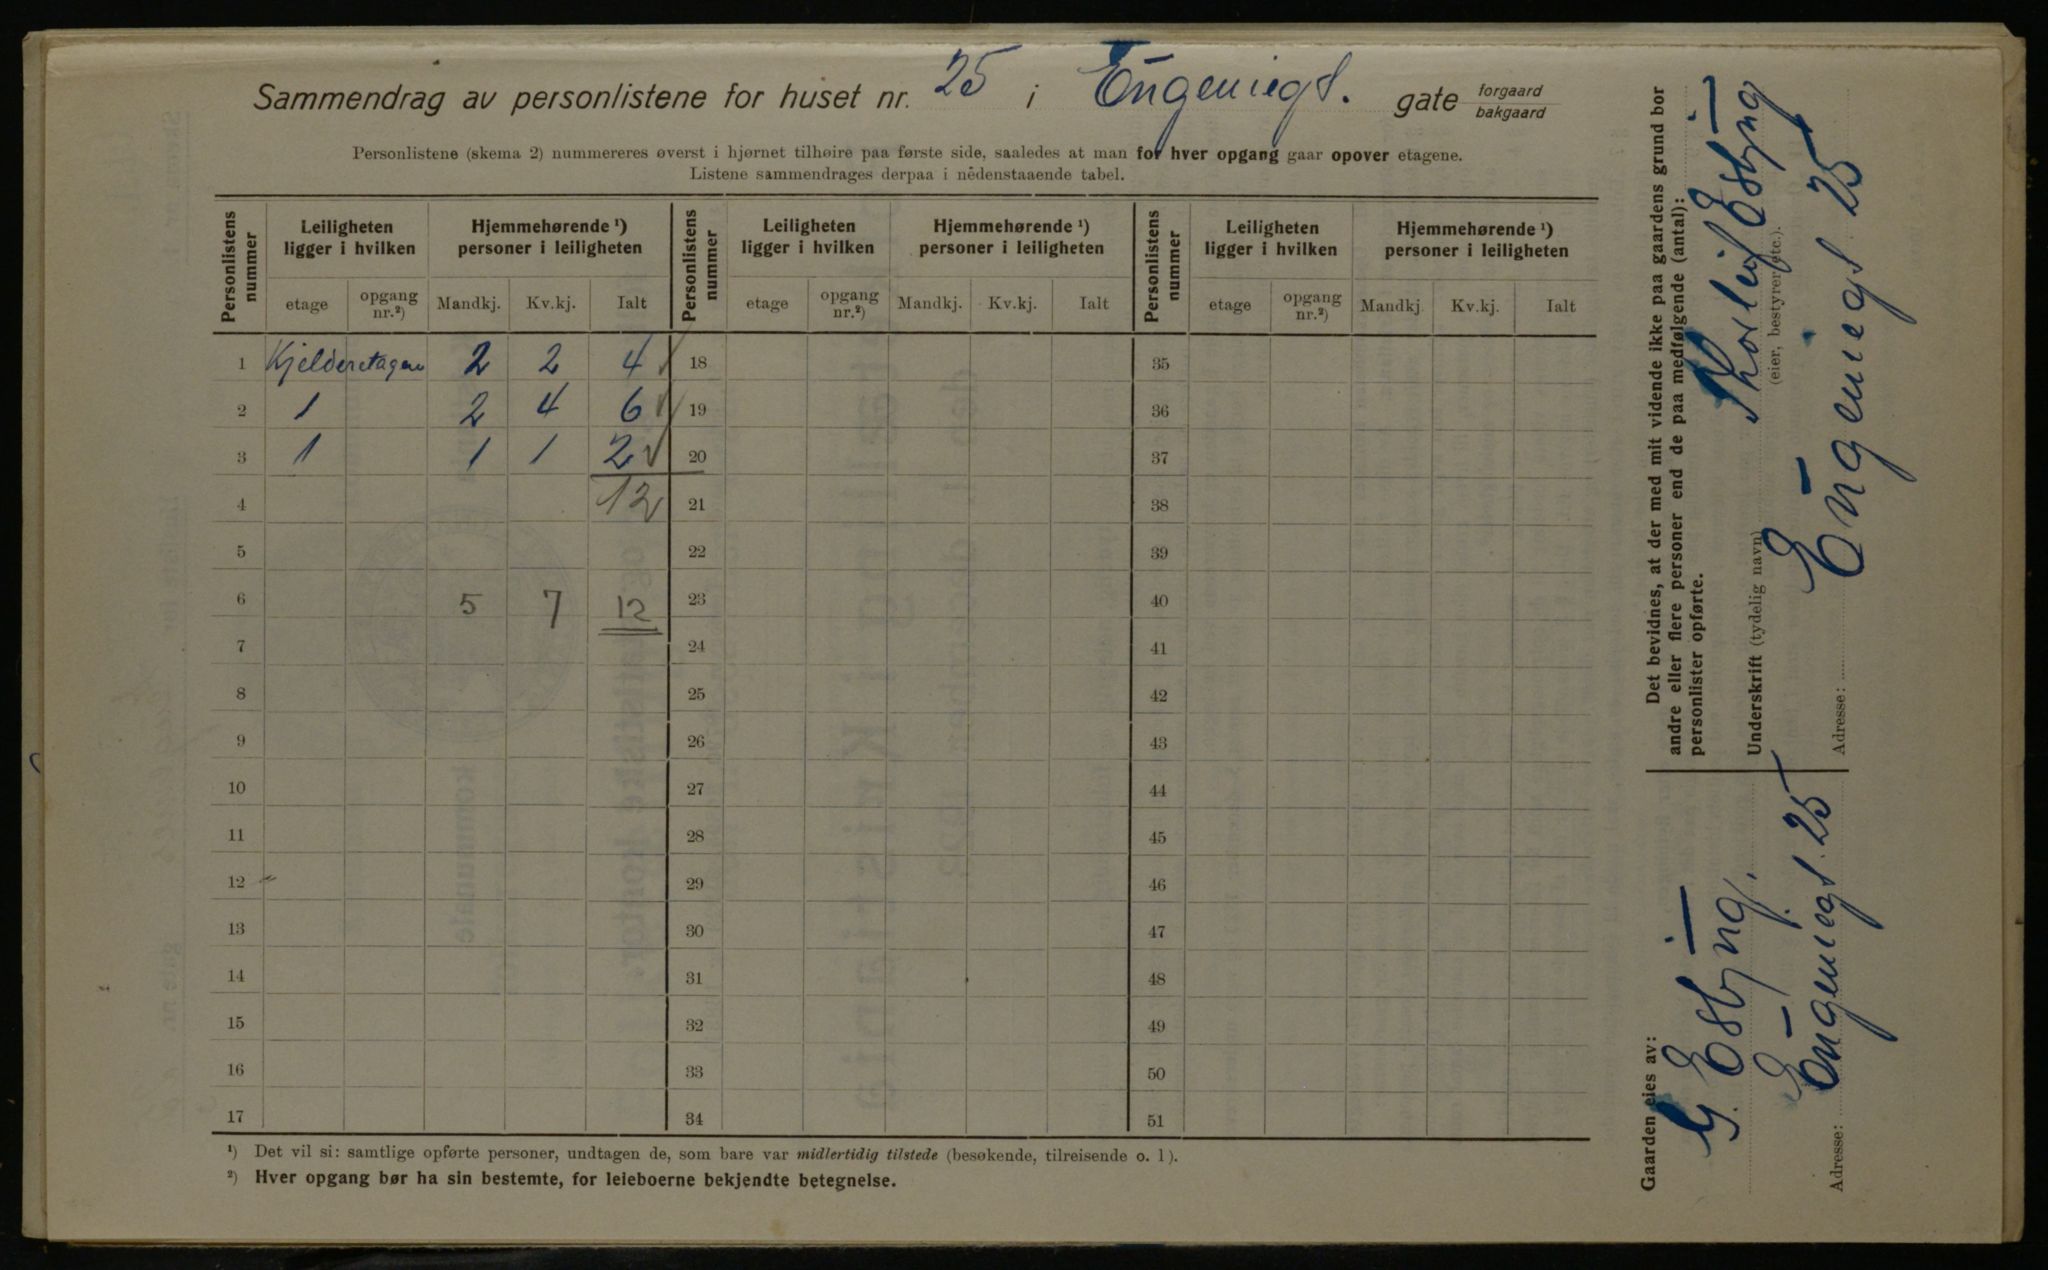 Sammendrag av personlistene for huset nr. 25 i Eugeniegt. gate forgaard
bakgaard
Personlistene (skema 2) nummereres øverst i hjørnet tilhøire paa første side, saaledes at man for hver opgang gaar opover etagene.
Listene sammendrages derpaa i nedenstaaende tabel.
Personlistens nummer | Leiligheten ligger i hvilken | Hjemmehørende ¹) personer i leiligheten | Personlistens nummer | Leiligheten ligger i hvilken | Hjemmehørende ¹) personer i leiligheten | Personlistens nummer | Leiligheten ligger i hvilken | Hjemmehørende ¹) personer i leiligheten
etage | opgang nr.²) | Mandkj. | Kv.kj. | Ialt | etage | opgang nr.²) | Mandkj. | Kv.kj. | Ialt | etage | opgang nr.²) | Mandkj. | Kv.kj. | Ialt
1 Kjelderetagen 2 2 4 18 35
2 1 2 4 6 19 36
3 1 1 1 2 20 37
4 12 21 38
5 22 39
6 5 7 12 23 40
7 24 41
8 25 42
9 26 43
10 27 44
11 28 45
12 29 46
13 30 47
14 31 48
15 32 49
16 33 50
17 34 51
¹) Det vil si: samtlige opførte personer, undtagen de, som bare var midlertidig tilstede (besøkende, tilreisende o. l).
²) Hver opgang bør ha sin bestemte, for leieboerne bekjendte betegnelse.
Det bevidnes, at der med mit vidende ikke paa gaardens grund bor
andre eller flere personer end de paa medfølgende (antal):
personlister opførte.
Underskrift (tydelig navn) Thorleif Esbjug
(eier, bestyrer etc.).
Adresse: Eugeniegt 25
Gaarden eies av:
G. Esbjug.
Adresse: Eugeniegt. 25